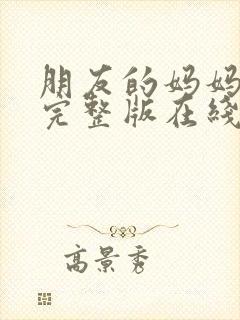 朋友的妈妈
完整版在线
高景秀